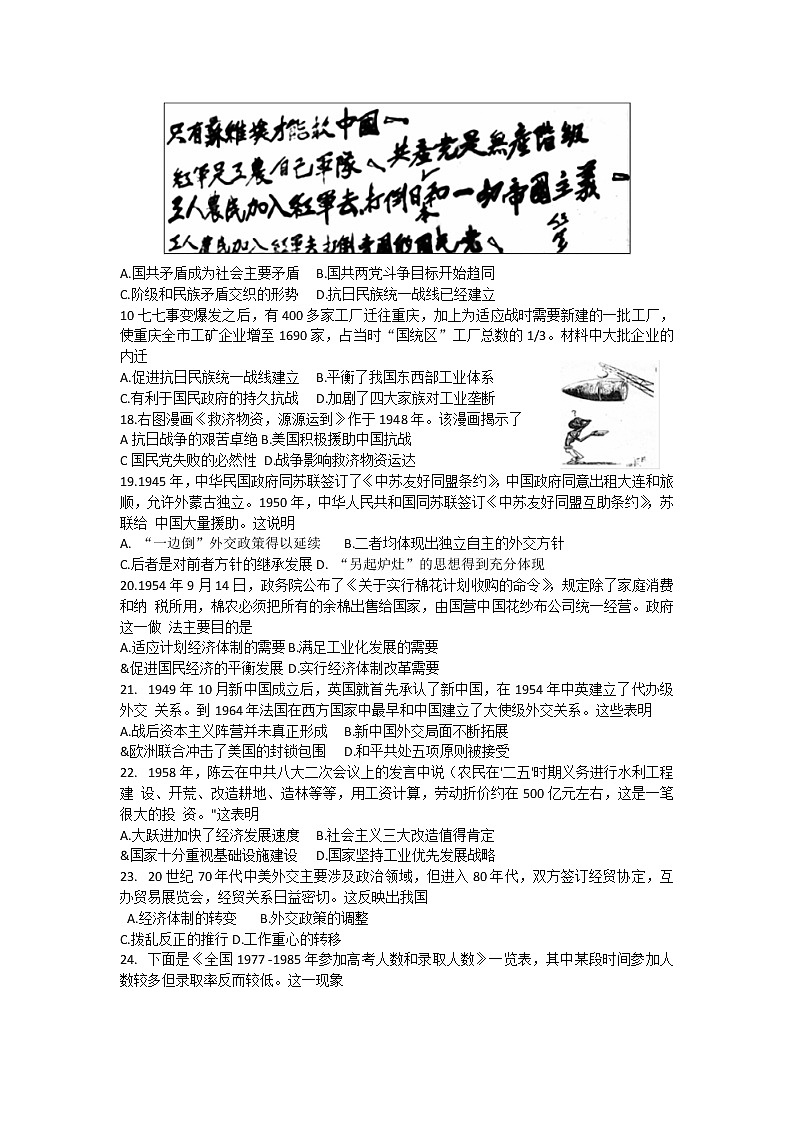 只有蘇維埃才能救中國
紅軍是工農自己軍隊、共産党是無産階級
工人農民加入紅軍去打倒日本和一切帝國主義
工人農民加入紅軍去打倒賣國的國民党
A.国共矛盾成为社会主要矛盾 B.国共两党斗争目标开始趋同
C.阶级和民族矛盾交织的形势 D.抗日民族统一战线已经建立
10 七七事变爆发之后，有 400 多家工厂迁往重庆，加上为适应战时需要新建的一批工厂，
使重庆全市工矿企业增至 1690 家，占当时“国统区”工厂总数的 1/3。材料中大批企业的
内迁
A.促进抗日民族统一战线建立 B.平衡了我国东西部工业体系
C.有利于国民政府的持久抗战 D.加剧了四大家族对工业垄断
18.右图漫画《救济物资，源源运到》作于 1948 年。该漫画揭示了
A 抗日战争的艰苦卓绝 B.美国积极援助中国抗战
C 国民党失败的必然性 D.战争影响救济物资运达
19.1945 年，中华民国政府同苏联签订了《中苏友好同盟条约》，中国政府同意出租大连和旅
顺，允许外蒙古独立。1950 年，中华人民共和国同苏联签订《中苏友好同盟互助条约》，苏
联给 中国大量援助。这说明
A. “一边倒”外交政策得以延续 B.二者均体现出独立自主的外交方针
C.后者是对前者方针的继承发展 D. “另起炉灶”的思想得到充分体现
20.1954 年 9 月 14 日，政务院公布了《关于实行棉花计划收购的命令》，规定除了家庭消费
和纳 税所用，棉农必须把所有的余棉出售给国家，由国营中国花纱布公司统一经营。政府
这一做 法主要目的是
A.适应计划经济体制的需要 B.满足工业化发展的需要
&促进国民经济的平衡发展 D.实行经济体制改革需要
21. 1949 年 10 月新中国成立后，英国就首先承认了新中国，在 1954 年中英建立了代办级
外交 关系。到 1964 年法国在西方国家中最早和中国建立了大使级外交关系。这些表明
A.战后资本主义阵营并未真正形成 B.新中国外交局面不断拓展
&欧洲联合冲击了美国的封锁包围 D.和平共处五项原则被接受
22. 1958 年，陈云在中共八大二次会议上的发言中说（农民在'二五'时期义务进行水利工程
建 设、开荒、改造耕地、造林等等，用工资计算，劳动折价约在 500 亿元左右，这是一笔
很大的投 资。"这表明
A.大跃进加快了经济发展速度 B.社会主义三大改造值得肯定
&国家十分重视基础设施建设 D.国家坚持工业优先发展战略
23. 20 世纪 70 年代中美外交主要涉及政治领域，但进入 80 年代，双方签订经贸协定，互
办贸易展览会，经贸关系日益密切。这反映出我国
A.经济体制的转变 B.外交政策的调整
C.拨乱反正的推行 D.工作重心的转移
24. 下面是《全国 1977 -1985 年参加高考人数和录取人数》一览表，其中某段时间参加人
数较多但录取率反而较低。这一现象